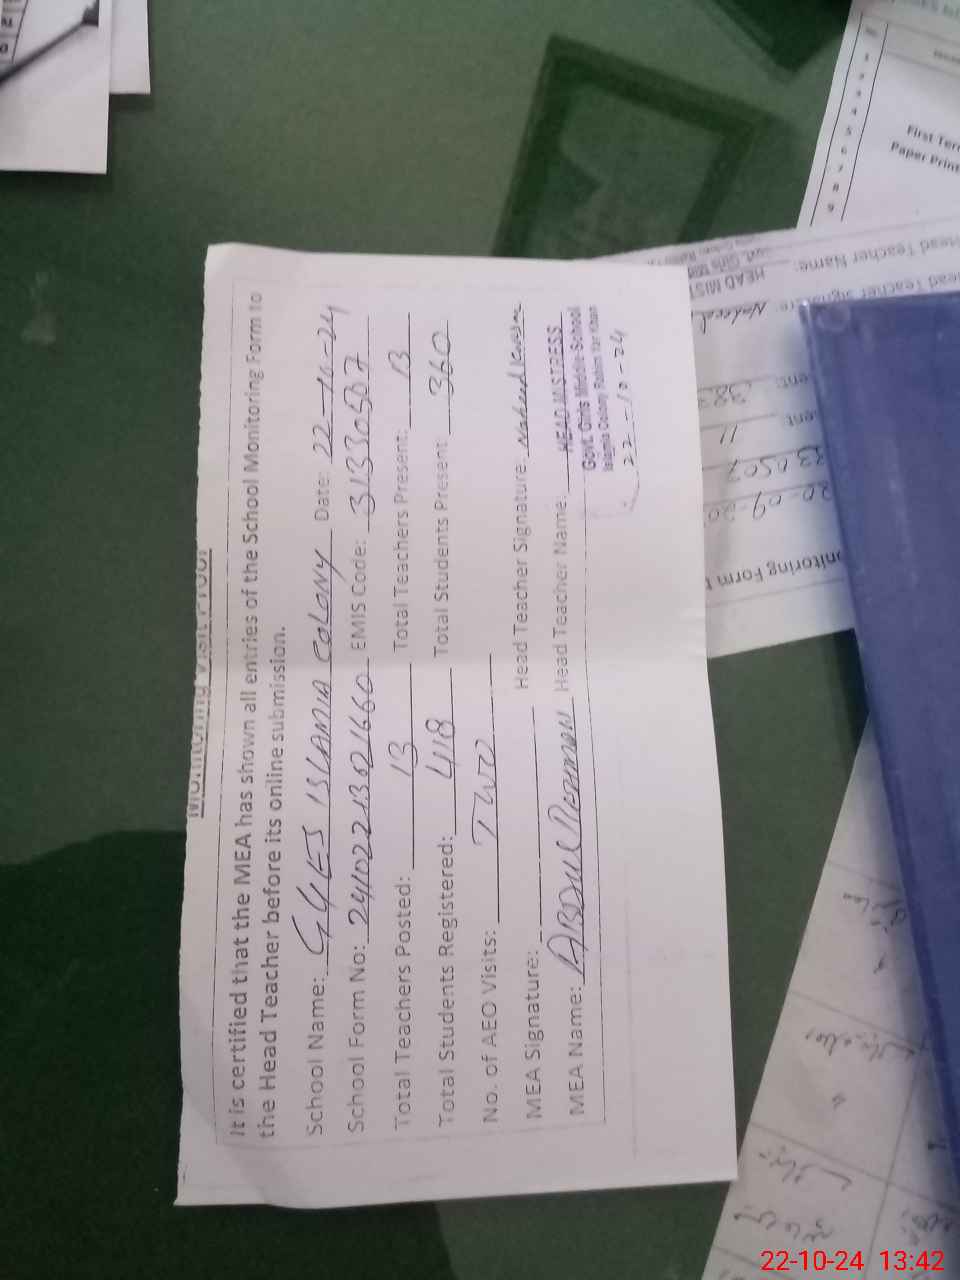 Monitoring Visit Proof
It is certified that the MEA has shown all entries of the School Monitoring Form to
the Head Teacher before its online submission.
School Name: GGES ISLAMIA COLONY Date: 22-10-24
School Form No: EMIS Code: 31330507
Total Teachers Posted: 13 Total Teachers Present: 13
Total Students Registered: 418 Total Students Present: 360
No. of AEO Visits: TWO
MEA Signature: Head Teacher Signature: Naheed Kausar
MEA Name: ABDUL REHMAN Head Teacher Name: HEAD MISTRESS
Govt. Girls Middle School
Islamia Colony Rahim Yar Khan
22-10-24
First Term
Paper Print
1
2
3
4
5
6
7
8
9
Head Teacher Name:
HEAD MIST
Head Teacher Signature: Naheed
383
11
330507
20-09-20
nitoring Form t
22-10-24 13:42